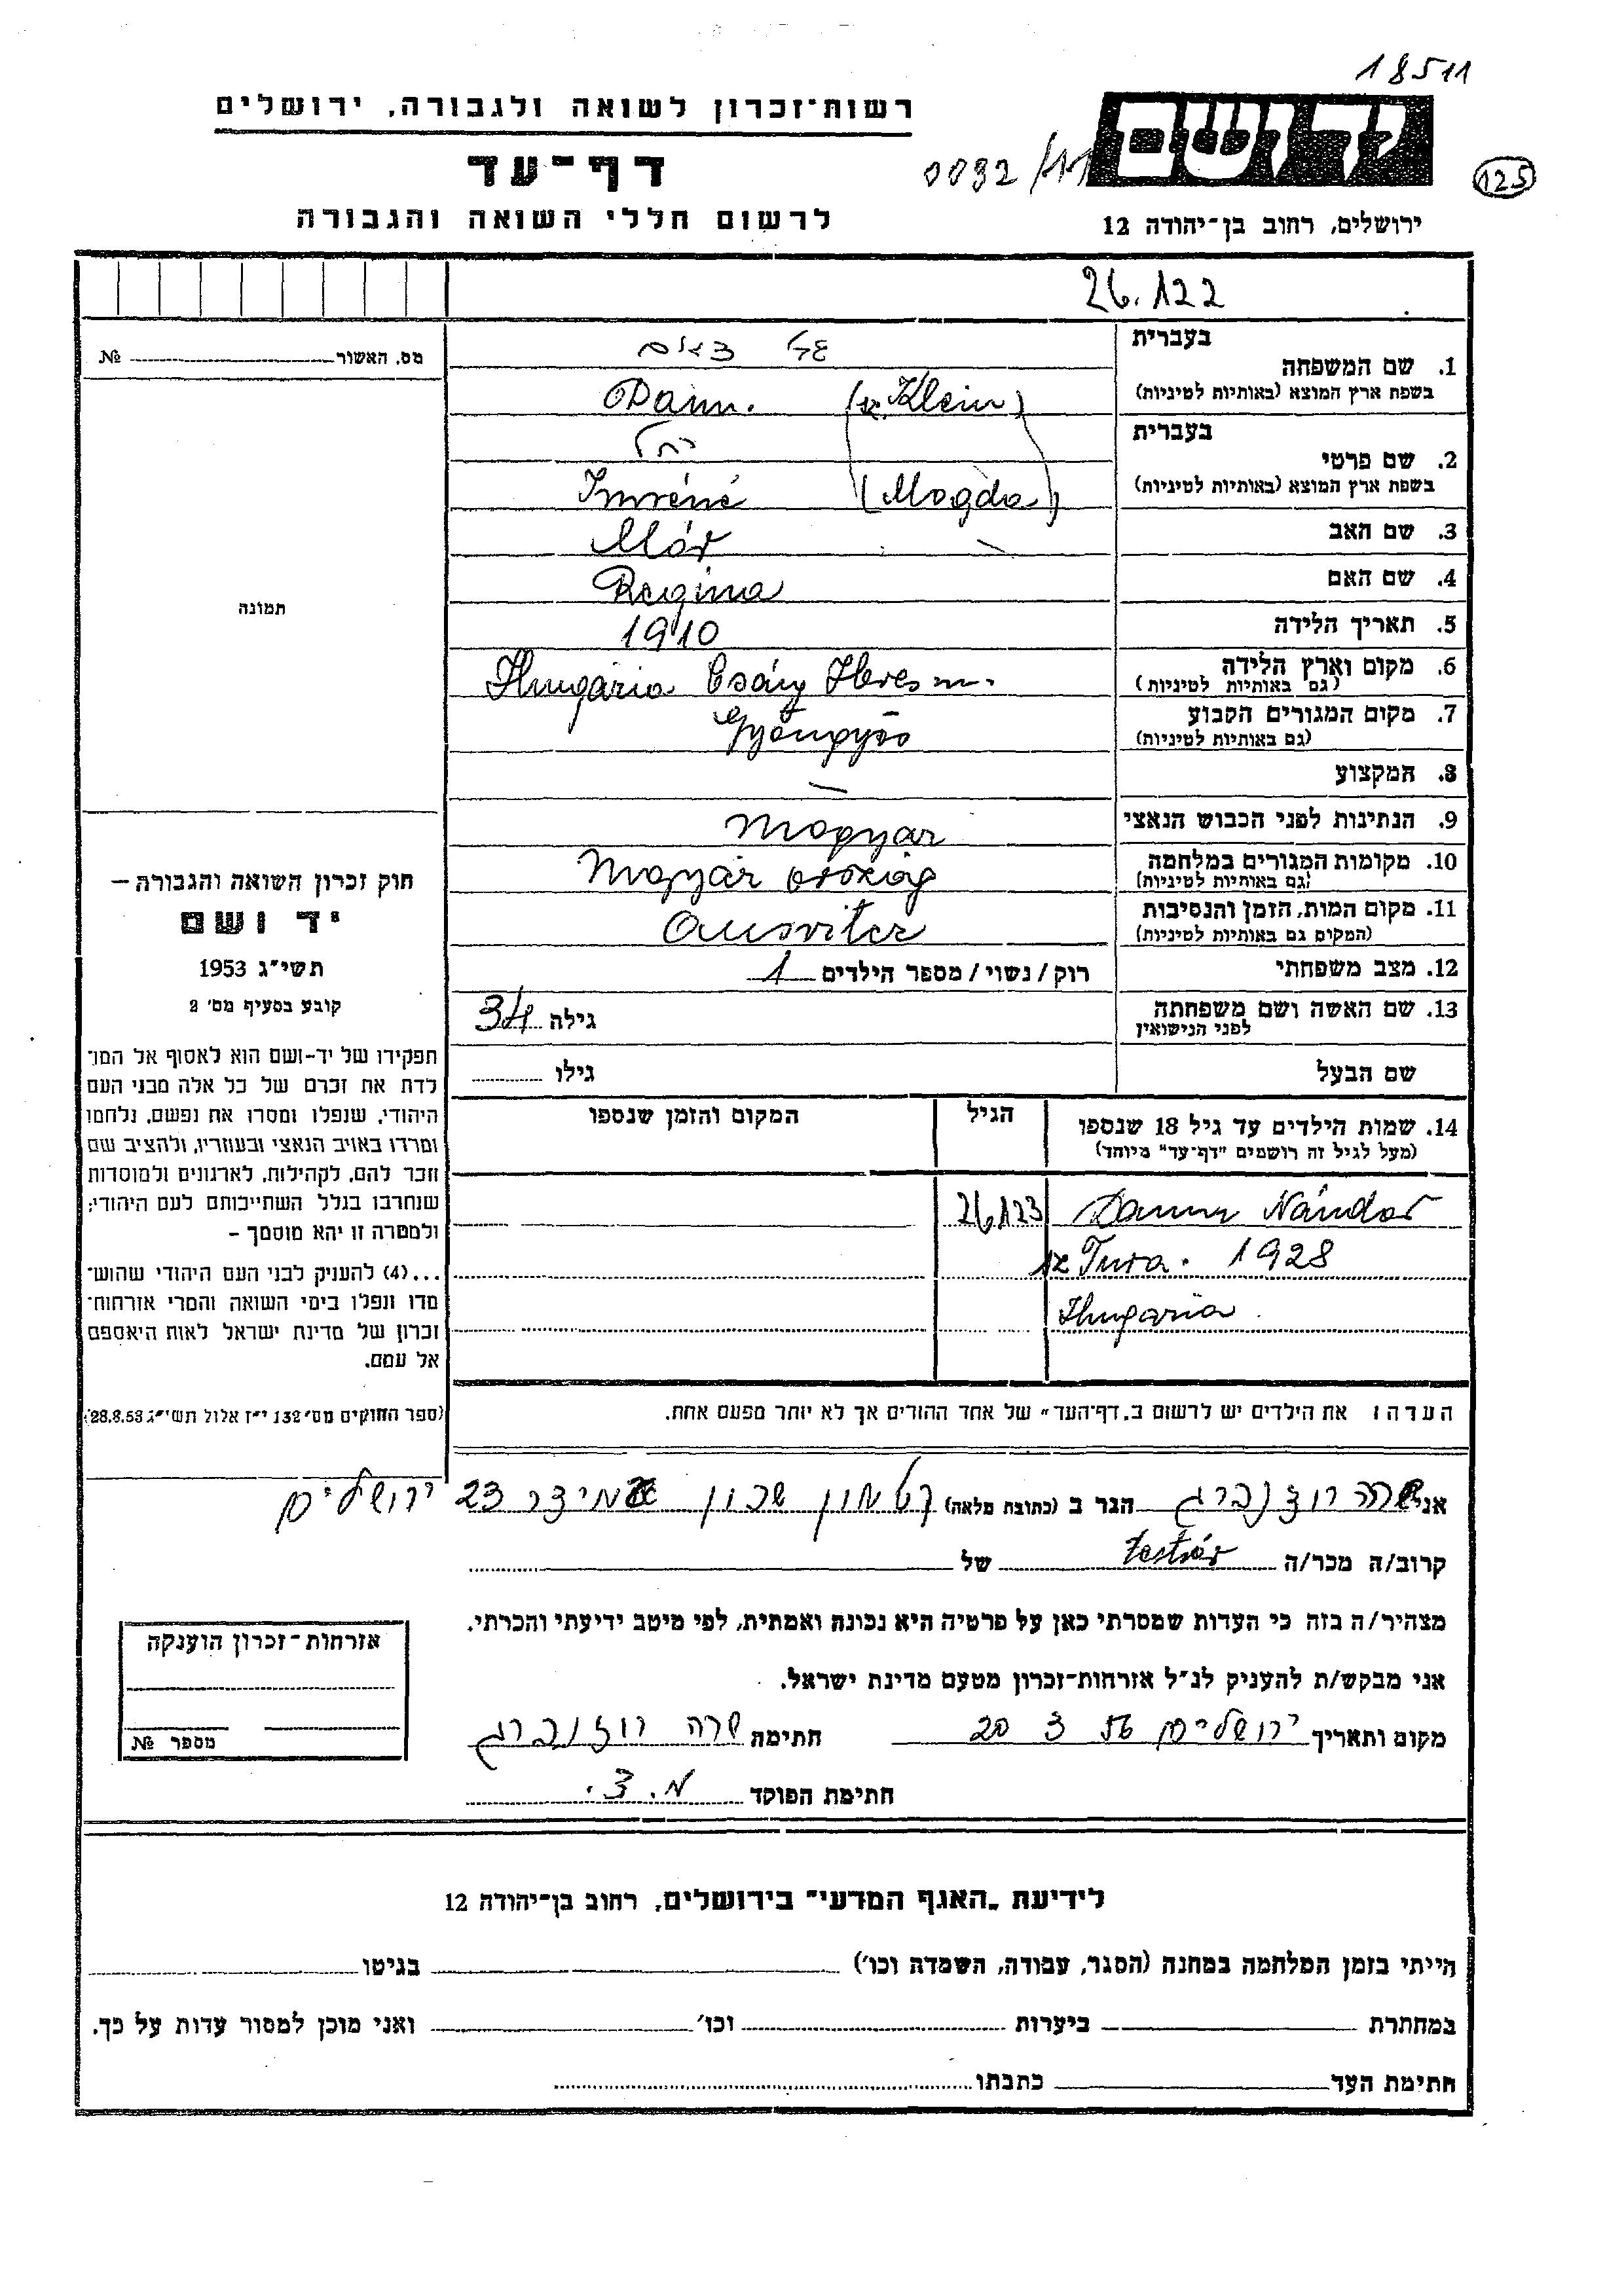 18511
רשות-זכרון לשואה ולגבורה, ירושלים
יד ושם
דף-עד
0092/11
125
לרשום חללי השואה והגבורה
ירושלים, רחוב בן-יהודה 12
26.122
מס. האשור № 
בעברית
1. שם המשפחה
בשפת ארץ המוצא (באותיות לטיניות)
Dann. (sz. Klein)
בעברית
רחל
2. שם פרטי
בשפת ארץ המוצא (באותיות לטיניות)
Imréné (Magda)
3. שם האב Mór
4. שם האם Regina
תמונה
5. תאריך הלידה 1910
6. מקום וארץ הלידה
(גם באותיות לטיניות)
Hungária Csány Heves m.
7. מקום המגורים הקבוע
(גם באותיות לטיניות)
Gyöngyös
8. המקצוע —
9. הנתינות לפני הכבוש הנאצי magyar
10. מקומות המגורים במלחמה
(גם באותיות לטיניות)
Magyar ország
11. מקום המות, הזמן והנסיבות
(המקום גם באותיות לטיניות)
Ausvitcz
12. מצב משפחתי רוק/נשוי/מספר הילדים 1
13. שם האשה ושם משפחתה
לפני הנישואין
גילה 34
שם הבעל גילו
14. שמות הילדים עד גיל 18 שנספו
(מעל לגיל זה רושמים "דף-עד" מיוחד)
הגיל
המקום והזמן שנספו
Dann Nándor 26123
sz Tura. 1928
Hungaria
הערה: את הילדים יש לרשום ב„דף-העד" של אחד ההורים אך לא יותר מפעם אחת.
חוק זכרון השואה והגבורה –
יד ושם
תשי"ג 1953
קובע בסעיף מס' 2
תפקידו של יד-ושם הוא לאסוף אל המו־
לדת את זכרם של כל אלה מבני העם
היהודי, שנפלו ומסרו את נפשם, נלחמו
ומרדו באויב הנאצי ובעוזריו, ולהציב שם
וזכר להם, לקהילות, לארגונים ולמוסדות
שנחרבו בגלל השתייכותם לעם היהודי;
ולמטרה זו יהא מוסמך –
...(4) להעניק לבני העם היהודי שהוש־
מדו ונפלו בימי השואה והמרי אזרחות־
זכרון של מדינת ישראל לאות היאספם
אל עמם.
(ספר החוקים מס' 132 י"ז אלול תשי"ג 28.8.53)
אני שרה רוזנברג הגר ב (כתובת מלאה) קטמון שכון עמידר 23 ירושלים
קרוב/ה מכר/ה testvér של
מצהיר/ה בזה כי העדות שמסרתי כאן על פרטיה היא נכונה ואמתית, לפי מיטב ידיעתי והכרתי.
אני מבקש/ת להעניק לנ"ל אזרחות-זכרון מטעם מדינת ישראל.
מקום ותאריך ירושלים 20 3 56 חתימה שרה רוזנברג
חתימת הפוקד מ. צ.
אזרחות-זכרון הוענקה
מספר №
לידיעת „האגף המדעי" בירושלים, רחוב בן-יהודה 12
הייתי בזמן המלחמה במחנה (הסגר, עבודה, השמדה וכו') בגיטו
במחתרת ביערות וכו' ואני מוכן למסור עדות על כך.
חתימת העד כתבתו